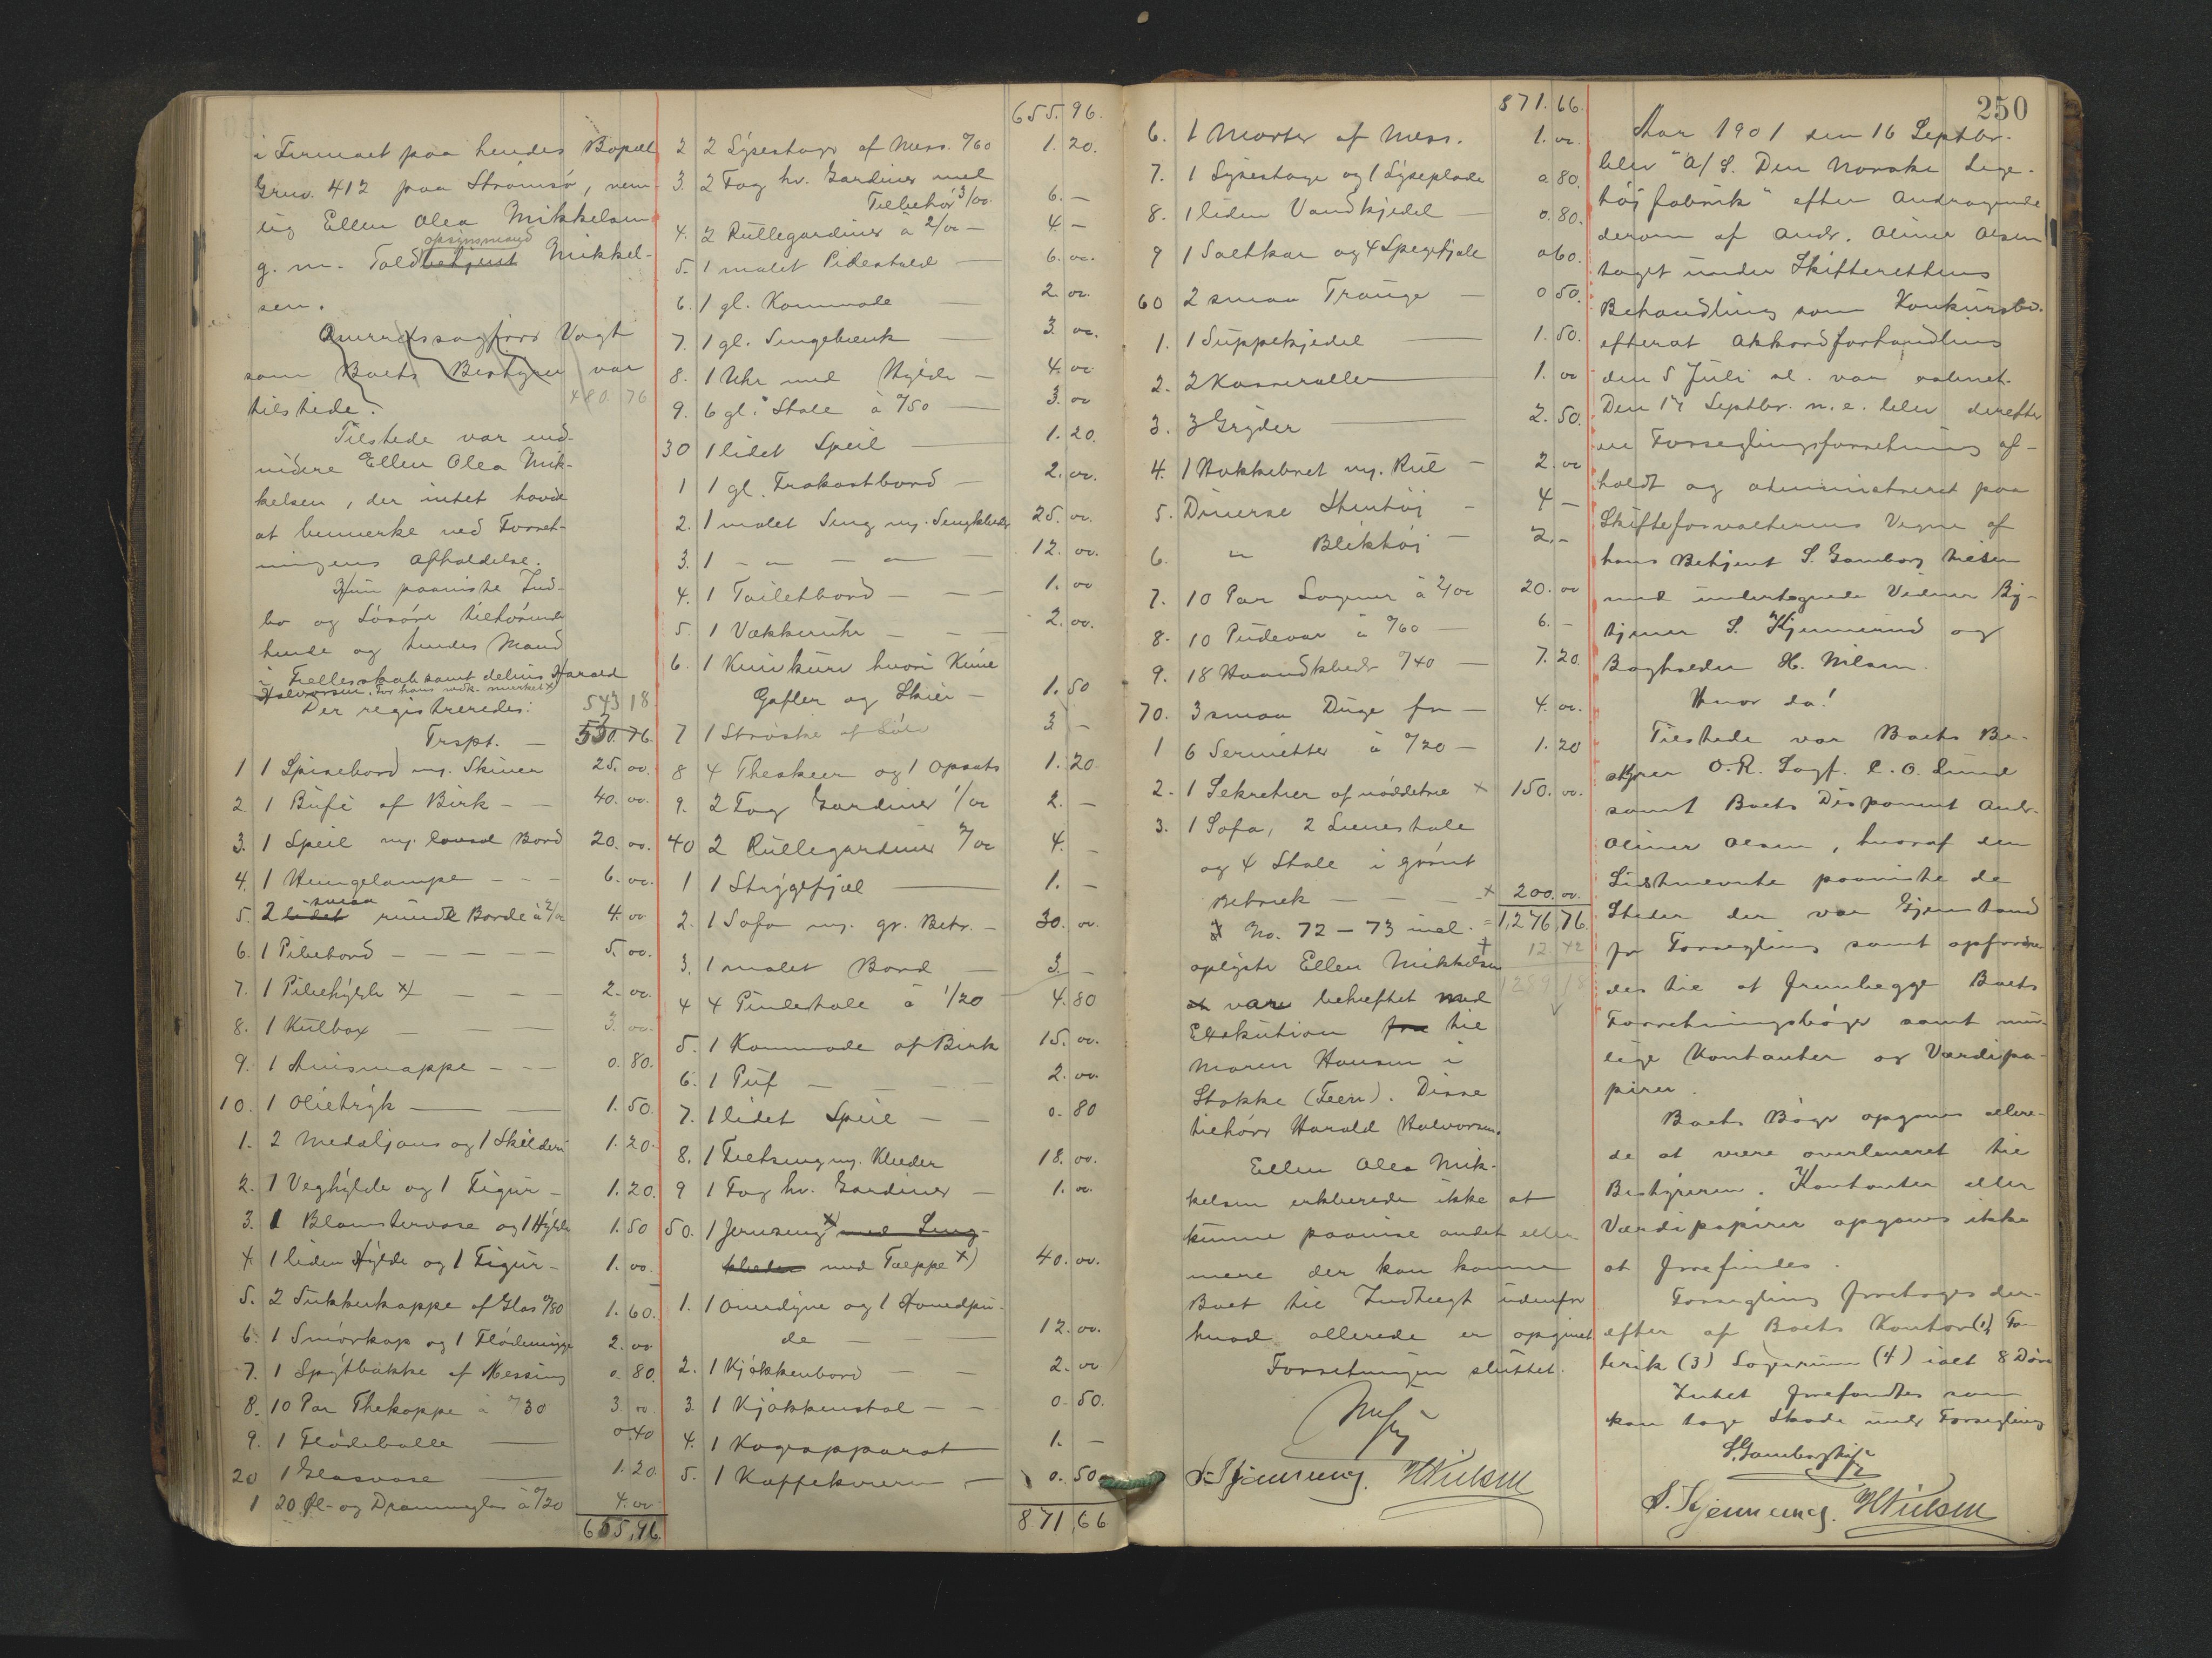 i Firmaet paa hendes Bopæl
Grno. 412 paa Strømsø, nem-
lig Ellen Olea Mikkelsen
opsynsmand
g. m. Toldbetjent Mikkel-
sen.
Overretssagfører Vogt
som Boets Bestyrer var
tilstede. 480 76
Tilstede var end-
videre Ellen Olea Mik-
kelsen, der intet havde
at bemærke ved Forret-
ningens Afholdelse.
Hun paaviste Ind-
bo og Løsøre tilhørende
hende og hendes Mand
i Fællesskab samt delvis Harald
Halvorsen, for hans vedk. mærket x)
Der registreredes: 543 18
Trspt. — 530.76.
1 1 Spisebord m. Skiver 25. oo.
2 1 Büfé af Birk - - 40. oo.
3. 1 Speil m. lavad Bord 20. oo.
4. 1 Hængelampe - - - 6. oo.
smaa
5. 2 lidet runde Borde à 2/oo 4. oo
6. 1 Pibebord - - - - - 5. oo.
7. 1 Pibehylde x) - - - 2. oo.
8. 1 Kulbox - - - 3. oo.
9. 1 Avismappe - - - 0. 80.
10. 1 Olietryk — — 1. 50.
1. 2 Medaljons og 1 Skilderi 1. 20.
2. 1 Veghylde og 1 Figur - 1. 20.
3. 1 Blomstervase og 1 Hylde 1. 50
4 1 liden Hylde og 1 Figur - 1. oo.
5. 2 Sukkerkoppe af Glas °/80 1. 60.
6. 1 Smørkop og 1 Flødemugge 2. oo
7. 1 Spytbakke af Messing 0. 80.
8. 10 Par Thekoppe à °/30 3. oo
9. 1 Flødebolle — 0.40
20 1 Glasvase — 1. 20.
1 20 Øl- og Dramglas à °/20 4. oo
655,96.
655. 96.
2 2 Lysestager af Mess. °/60 1. 20.
3. 2 Fag hv. Gardiner med
Tilbehør 3/oo. 6. —
4. 2 Rullegardiner à 2/oo - 4 -
5. 1 malet Pidestald — 6. oo.
6. 1 gl. Kommode — 2. oo.
7. 1 gl. Sengebænk — 3. oo.
8. 1 Uhr med Hylde — 4. oo
9. 6 gl. Stole à °/50 — 3. oo
30 1 lidet Speil — 1. 20.
1 1 gl. Frokostbord — 2. oo.
2. 1 malet Seng m. Sengklæder 25. oo.
3. 1 - " - " - 12. oo.
4. 1 Toiletbord - - - 1. oo
5. 1 Vækkeruhr - - - 2. oo.
6. 1 Knivkurv hvori Knive
Gafler og Skeer — 1. 50
7 1 Strøske af Sølv 3 -
8 4 Theskeer og 1 Opsats 1. 20
9. 2 Fag Gardiner 1/oo 2. -
40 2 Rullegardiner 2/oo 4. -
1 1 Strygefjæl — 1. -
2. 1 Sofa m. gr. Betr. - 30. oo.
3. 1 malet Bord — 3. -
4 4 Pindestole à 1/20 4. 80
5. 1 Kommode af Birk 15. oo.
6. 1 Puf - - - 2. oo.
7. 1 lidet Speil - - 0. 80
8. 1 Feltseng m. Klæder 18. oo.
9 1 Fag hv. Gardiner — 1. oo.
50. 1 Jernseng x) med Seng-
klæder med Tæppe x) 40. oo.
1. 1 Overdyne og 1 Hovedpu-
de - - - 12. oo.
2. 1 Kjøkkenbord — 2. oo
3. 1 Kjøkkenstol - - 0. 50.
4. 1 Kogeapparat 1. -
5. 1 Kaffekværn — 0. 50
871,66
871. 66.
6. 1 Morter af Mess. 1. oo.
7. 1 Lysestage og 1 Lyseplade 0. 80.
8. 1 liden Vandkjedel — 0. 80.
9 1 Saltkar og 4 Spegefjæle 0 60.
60 2 smaa Trauge — 0 50.
1. 1 Suppekjedel — 1. 50.
2. 2 Kasseroller — 1. oo
3. 3 Gryder — 2. 50.
4. 1 Hakkebret m. Rul — 2. oo
5. Diverse Stentøj - 4 —
6. " Bliktøj — 2. -
7. 10 Par Lagener à 2/oo 20. oo
8. 10 Pudevar à °/60 — 6. -
9. 18 Haandklæder °/40 — 7. 20.
70. 3 smaa Duge for — 4. oo.
1 6 Servietter à °/20 — 1. 20
2. 1 Sekretær af nøddetræ x 150. oo.
3. 1 Sofa, 2 Lænestole
og 4 Stole i grønt
Betræk - - - x 200. oo.
No. 72 — 73 incl. = 1,276,76.
+ 12 42
oplyste Ellen Mikkelsen 1289 18
at vare beheftet med
Exekution fra til
Maren Hansen i
Stokke (Feen). Disse
tilhører Harald Halvorsen.
Ellen Olea Mik-
kelsen erklærede ikke at
kunne paavise andet eller
mere der kan komme
Boet til Indtægt udenfor
hvad allerede er opgivet
Forretningen sluttet.
S. Kjennerud. H Nielsen
250
Aar 1901 den 16 Septbr.
blev "A/S. Den Norske Lege-
tøjfabrik" efter Andragende
derom af Andr. Oliver Olsen
taget under Skifterettens
Behandling som Konkursbo.
efterat Akkordforhandling
den 5 Juli d. var aabnet.
Den 17 Septbr. n. e. blev derefter
en Forseglingsforretning af-
holdt og administreret paa
Skifteforvalterens Vegne af
hans Betjent S. Gamborg Nielsen
med undertegnede Vidner By-
tjener S. Kjennerud og
Bogholder H. Nilsen.
Hvor da!
Tilstede var Boets Be-
styrer O.R. Sagf. C. O. Lund
samt Boets Disponent Andr.
Oliver Olsen, hvoraf den
Sidstnevnte paaviste de
Steder der var Gjenstand
for Forsegling samt opfordre-
des til at fremlægge Boets
Forretningsbøger samt mu-
lige Kontanter og Værdipa-
pirer.
Boets Bøger opgaves allere-
de at være overleveret til
Bestyreren. Kontanter eller
Værdipapirer opgaves ikke
at forefindes.
Forsegling foretoges der-
efter af Boets Kontor (1), Fa-
brik (3) Lagerrum (4) ialt 8 Døre
Intet forefandtes som
kan tage Skade under Forsegling
S. Kjennerud. H Nielsen